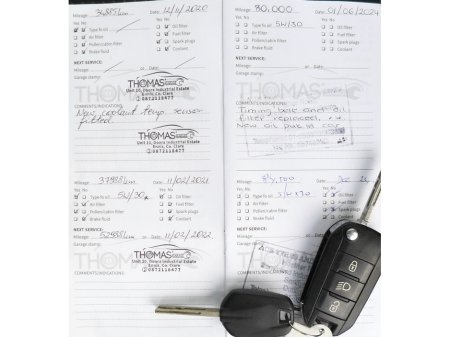 Mileage: 36885km Date: 12/11/2020
Yes No Yes No
Type fo oil Oil filter
Air filter Fuel filter
Pollen/cabin filter Spark plugs
Brake fluid Coolant
NEXT SERVICE:
Mileage: or Date:
Garage stamp:
THOMAS
Unit 10, Doora Industrial Estate
Ennis, Co. Clare
0872118477
COMMENTS/INDICATIONS:
New coolant temp sensor
fitted.
THOMAS
Unit 10, Doora Industrial Estate
Ennis, Co. Clare
0872118477
Mileage: 37988km Date: 11/02/2021
Yes No Yes No
Type fo oil 5W/30 Oil filter
Air filter Fuel filter
Pollen/cabin filter Spark plugs
Brake fluid Coolant
NEXT SERVICE:
Mileage: 52988km or Date: 11/02/2022
Garage stamp:
THOMAS
Unit 10, Doora Industrial Estate
Ennis, Co. Clare
0872118477
COMMENTS/INDICATIONS:
Mileage: 80,000 Date: 01/06/2024
Yes No Yes No
Type fo oil 5W/30 Oil filter
Air filter Fuel filter
Pollen/cabin filter Spark plugs
Brake fluid Coolant
NEXT SERVICE:
Mileage: or Date:
Garage stamp:
COMMENTS/INDICATIONS:
Timing belt and oil
filter replaced.
New oil put in
Mileage: Date:
Yes No Yes No
Type fo oil Oil filter
Air filter Fuel filter
Pollen/cabin filter Spark plugs
Brake fluid Coolant
NEXT SERVICE:
Mileage:
Garage stamp:
COMMENTS/INDICATIONS: